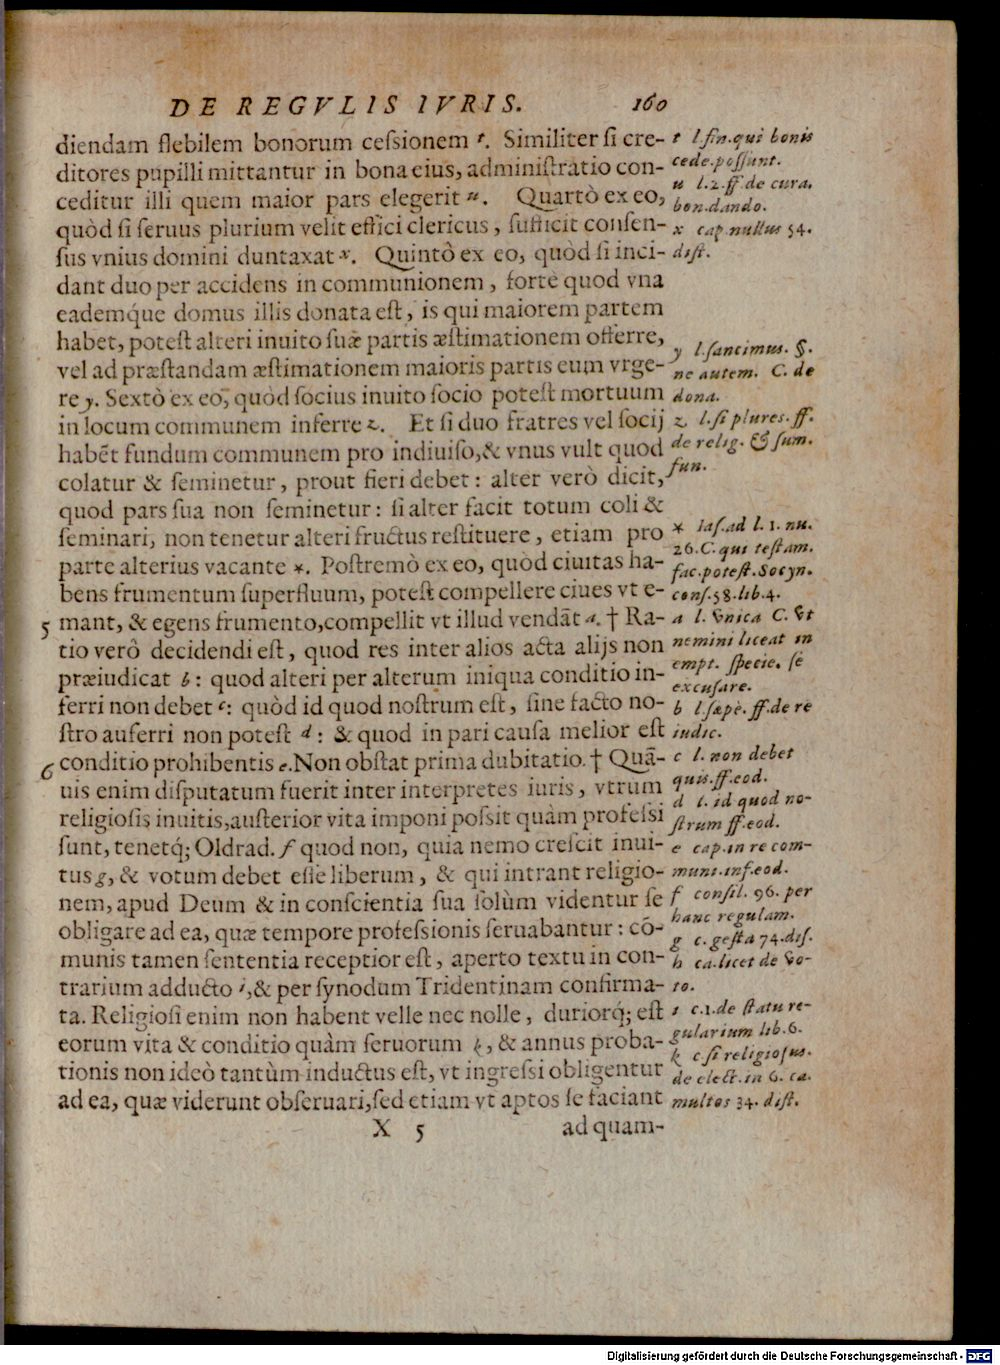 DE REGVLIS IVRIS. 160
diendam flebilem bonorum cessionem t. Similiter si cre-
ditores pupilli mittantur in bona eius, administratio con-
ceditur illi quem maior pars elegerit u. Quartò ex eo,
quòd si seruus plurium velit effici clericus, sufficit consen-
sus vnius domini duntaxat x. Quintò ex eo, quòd si inci-
dant duo per accidens in communionem, fortè quod vna
eademq́ue domus illis donata est, is qui maiorem partem
habet, potest alteri inuito suæ partis æstimationem offerre,
vel ad præstandam æstimationem maioris partis eum vrge-
re y. Sextò ex eo, quòd socius inuito socio potest mortuum
in locum communem inferre z. Et si duo fratres vel socij
habẽt fundum communem pro indiuiso, & vnus vult quod
colatur & seminetur, prout fieri debet: alter verò dicit,
quod pars sua non seminetur: si alter facit totum coli &
seminari, non tenetur alteri fructus restituere, etiam pro
parte alterius vacante *. Postremò ex eo, quòd ciuitas ha-
bens frumentum superfluum, potest compellere ciues vt e-
5 mant, & egens frumento, compellit vt illud vendãt a. † Ra-
tio verò decidendi est, quod res inter alios acta alijs non
præiudicat b: quod alteri per alterum iniqua conditio in-
ferri non debet c: quòd id quod nostrum est, sine facto no-
stro auferri non potest d: & quod in pari causa melior est
conditio prohibentis e. Non obstat prima dubitatio. † Quã-
6 uis enim disputatum fuerit inter interpretes iuris, vtrum
religiosis inuitis, austerior vita imponi possit quàm professi
sunt, tenetq́; Oldrad. f quod non, quia nemo crescit inui-
tus g, & votum debet esse liberum, & qui intrant religio-
nem, apud Deum & in conscientia sua solùm videntur se
obligare ad ea, quæ tempore professionis seruabantur: cõ-
munis tamen sententia receptior est, aperto textu in con-
trarium adducto i, & per synodum Tridentinam confirma-
ta. Religiosi enim non habent velle nec nolle, duriorq́; est
eorum vita & conditio quàm seruorum k, & annus proba-
tionis non ideò tantùm inductus est, vt ingressi obligentur
ad ea, quæ viderunt obseruari, sed etiam vt aptos se faciant
X 5 ad quam-
t l. fin. qui bonis
cede. possunt.
u l. 2. ff. de cura.
bon. dando.
x cap. nullus 54.
dist.
y l. sancimus. §.
ne autem. C. de
dona.
z l. si plures. ff.
de relig. & sum.
fun.
* Ias. ad l. 1. nu.
26. C. qui testam.
fac. potest. Socyn.
cons. 58. lib. 4.
a l. vnica C. vt
nemini liceat in
empt. specie. se
excusare.
b l. sæpè. ff. de re
iudic.
c l. non debet
quis. ff. eod.
d l. id quod no-
strum ff. eod.
e cap. in re com-
muni. inf. eod.
f consil. 96. per
hanc regulam.
g c. gesta 74. dis.
h ca. licet de vo-
to.
i c. 1. de statu re-
gularium lib. 6.
k c. si religiosus.
de elect. in 6. ca.
multos 34. dist.
Digitalisierung gefördert durch die Deutsche Forschungsgemeinschaft - DFG